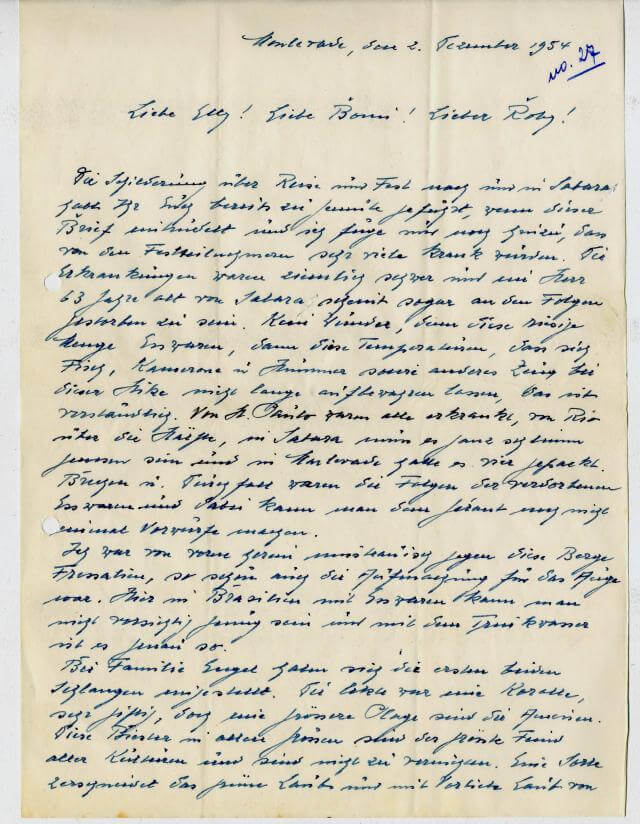 Monlevade, den 2. Dezember 1954
no. 27
Liebe Elly! Liebe Bomi! Lieber Roby!
Die Schilderung über Reise und Fest nach und in Sabara
habt Ihr Euch bereits zu Gemüte geführt, wenn dieser
Brief eintrudelt und ich füge nur noch hinzu, das
von den Festteilnehmern sehr viele krank wurden. Die
Erkrankungen waren ziemlich schwer und ein Herr
63 Jahre alt von Sabara, scheint sogar an den Folgen
gestorben zu sein. Kein Wunder, denn diese riesige
Menge Esswaren, dann diese Temperaturen, dass sich
Fisch, Kamerone u Hummer sowie anderes Zeug bei
dieser Hitze nicht lange aufbewahren lassen, das ist
verständlich. Von St. Paulo waren alle erkrankt, von Rio
über die Hälfte, in Sabara muss es ganz schlimm
gewesen sein und in Monlevade hatte es vier gepackt.
Brechen u. Durchfall waren die Folgen der verdorbenen
Esswaren und dabei kann man dem Gérant noch nicht
einmal Vorwürfe machen.
Ich war von vorne herein misstrauisch gegen diese Berge
Fressalien, so schön auch die Aufmachung für das Auge
war. Hier in Brasilien mit Esswaren kann man
nicht vorsichtig genug sein und mit dem Trinkwasser
ist es genau so.
Bei Familie Engel haben sich die ersten beiden
Schlangen eingestellt. Die letzte war eine Koralle,
sehr giftig, doch eine grössere Plage sind die Ameisen.
Diese Biester in allen Grössen sind der grösste Feind
aller Kulturen und sind nicht zu vernichten. Eine Sorte
zerschneidet das grüne Laub und mit Vorliebe Laub von